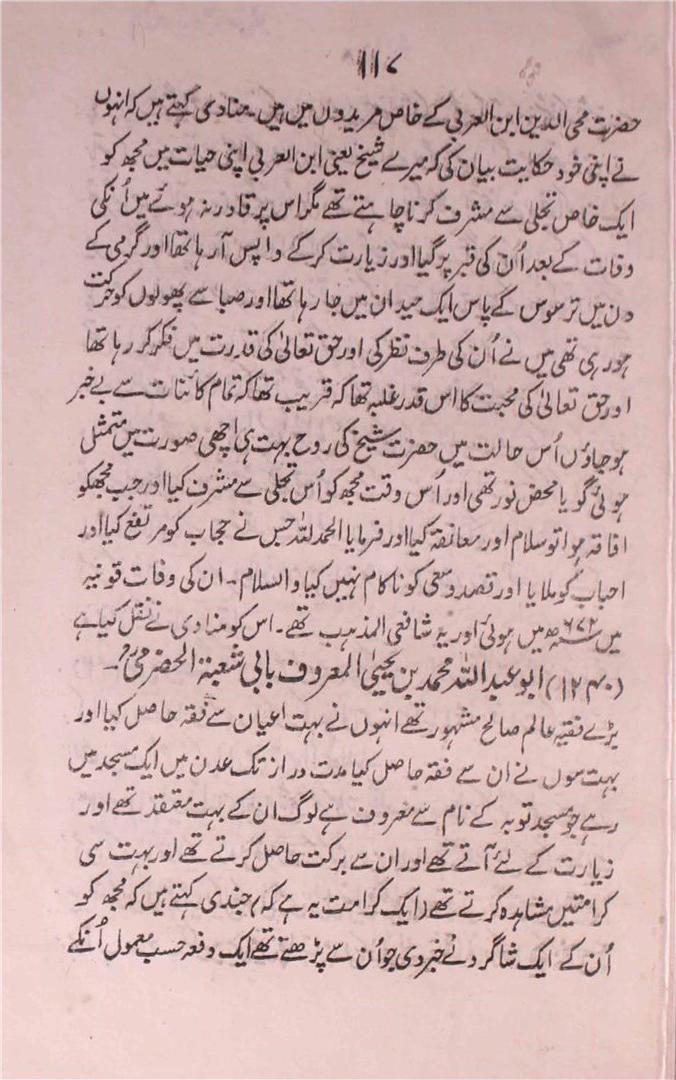 ۱۱۷
حضرت محی الدین ابن العربی کے خاص مریدوں میں ہیں۔ مناوی کہتے ہیں کہ انہوں
نے اپنی خود حکایت بیان کی کہ میرے شیخ یعنی ابن العربی اپنی حیات میں مجھ کو
ایک خاص تجلی سے مشرف کرنا چاہتے تھے مگر اس پر قادر نہ ہوئے میں اُنکی
وفات کے بعد اُن کی قبر پر گیا اور زیارت کرکے واپس آرہا تھا اور گرمی کے
دن میں ترسوس کے پاس ایک میدان میں جا رہا تھا اور صبا سے پھولوں کو حرکت
ہو رہی تھی میں نے اُن کی طرف نظر کی اور حق تعالیٰ کی قدرت میں فکر کر رہا تھا
اور حق تعالیٰ کی محبت کا اس قدر غلبہ تھا کہ قریب تھا کہ تمام کائنات سے بے خبر
ہو جاؤں اُس حالت میں حضرت شیخ کی روح بہت ہی اچھی صورت میں متمثل
ہوئی گویا محض نور تھی اور اُس وقت مجھ کو اُس تجلی سے مشرف کیا اور جب مجھکو
افاقہ ہوا تو سلام اور معانقہ کیا اور فرمایا الحمد للہ جس نے حجاب کو مرتفع کیا اور
احباب کو ملایا اور قصد و سعی کو ناکام نہیں کیا والسلام۔ ان کی وفات قونیہ
میں ۶۷۲ھ میں ہوئی اور یہ شافعی المذہب تھے۔ اس کو مناوی نے نقل کیا ہے
(۱۲۴۰) ابو عبد اللہ محمد بن یحییٰ المعروف بابی شعبۃ الحضرمیؒ۔
بڑے فقیہ عالم صالح مشہور تھے انہوں نے بہت اعیان سے فقہ حاصل کیا اور
بہت سوں نے ان سے فقہ حاصل کیا مدت دراز تک عدن میں ایک مسجد میں
رہے جو مسجد توبہ کے نام سے معروف ہے لوگ ان کے بہت معتقد تھے اور
زیارت کے لئے آتے تھے اور ان سے برکت حاصل کرتے تھے اور بہت سی
کرامتیں مشاہدہ کرتے تھے (ایک کرامت یہ ہے کہ) جندی کہتے ہیں کہ مجھ کو
اُن کے ایک شاگرد نے خبر دی جو اُن سے پڑھتے تھے ایک دفعہ حسب معمول اُنکے